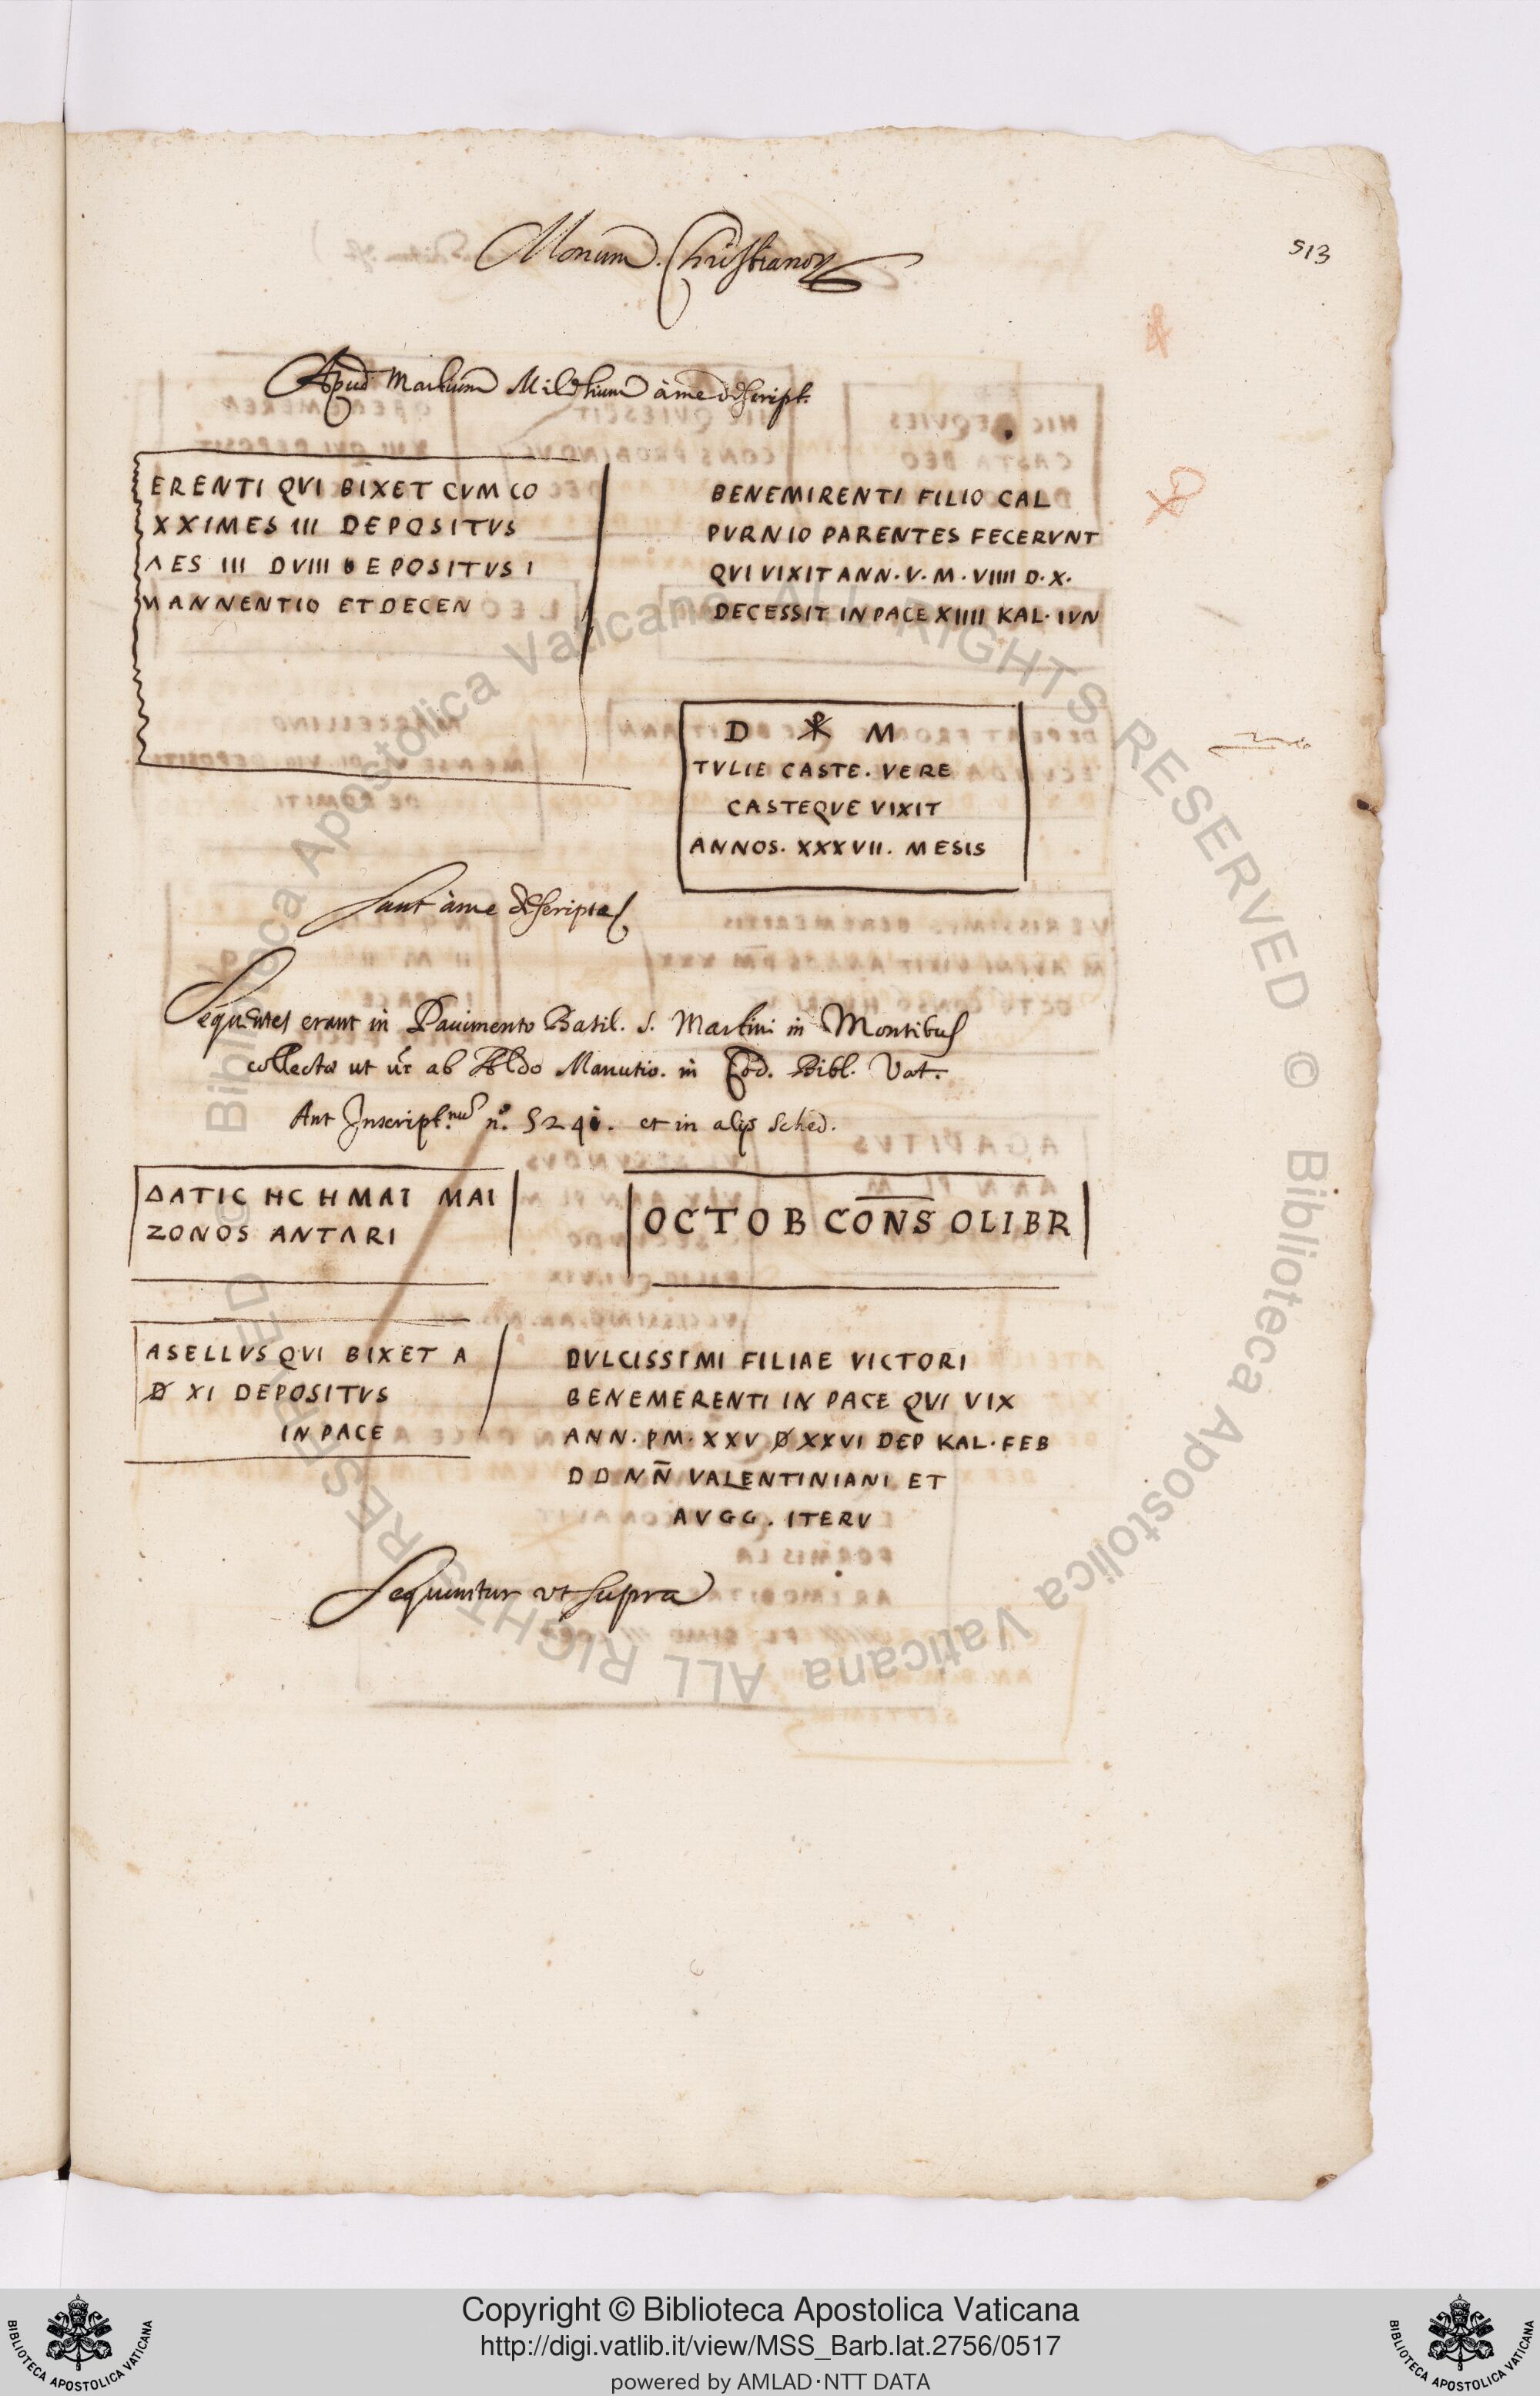 513
Monum. Christianor
Apud Marlium Milesium à me descript.
ERENTI QVI BIXET CVM CO
XXIMES III DEPOSITVS
ΛES III DVIII DEPOSITVS I
MANNENTIO ET DECEN
BENEMIRENTI FILIO CAL
PVRNIO PARENTES FECERVNT
QVI VIXIT ANN. V. M. VIIII D. X.
DECESSIT IN PACE XIIII KAL. IVN
D ☧ M
TVLIE CASTE. VERE
CASTEQVE VIXIT
ANNOS. XXXVII. MESIS
Sunt à me descriptae
Sequentes erant in Pauimento Basil. S. Martini in Montibus
collectae ut ab Aldo Manutio. in Cod. Bibl. Vat.
Ant Inscript. n.º 5241. et in alijs Sched.
ΔATIC HC HMAI MAI
ZONOS ANTΛRI
OCTOB CONS OLIBR
ASELLVS QVI BIXET A
D XI DEPOSITVS
IN PACE
DVLCISSIMI FILIAE VICTORI
BENEMERENTI IN PACE QVI VIX
ANN. PM. XXV D XXVI DEP KAL. FEB
D D N N̄ VALENTINIANI ET
AVGG. ITERV
Sequuntur ut supra
© Biblioteca Apostolica Vaticana ALL RIGHTS RESERVED © Biblioteca Apostolica Vaticana ALL RIGHTS RESERVED
Copyright © Biblioteca Apostolica Vaticana
http://digi.vatlib.it/view/MSS_Barb.lat.2756/0517
powered by AMLAD·NTT DATA
BIBLIOTECA APOSTOLICA VATICANA
BIBLIOTECA APOSTOLICA VATICANA